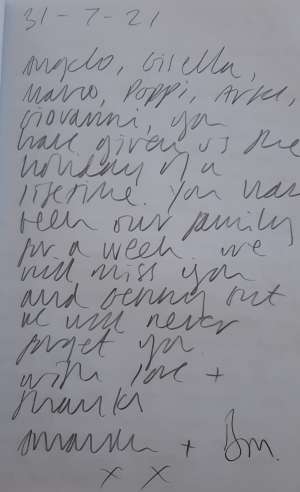 31-7-21
Angelo, Gisella,
Mario, Poppi,
Giovanni, you
have given us the
holiday of a
lifetime. You have
been our family
for a week. We
will miss you
and
we will never
forget you.
with love +
thanks
Amanda +
x x